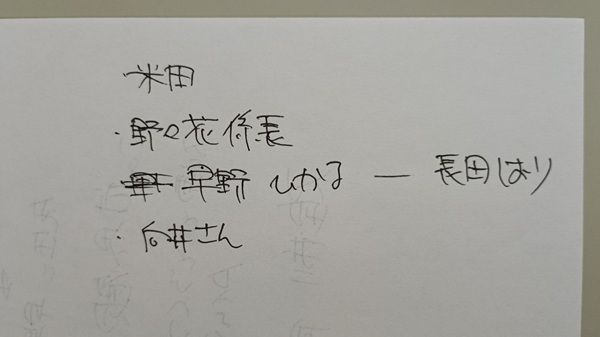 ・米田
・野々花係長
早野ひかる ― 長田しおり
・向井さん